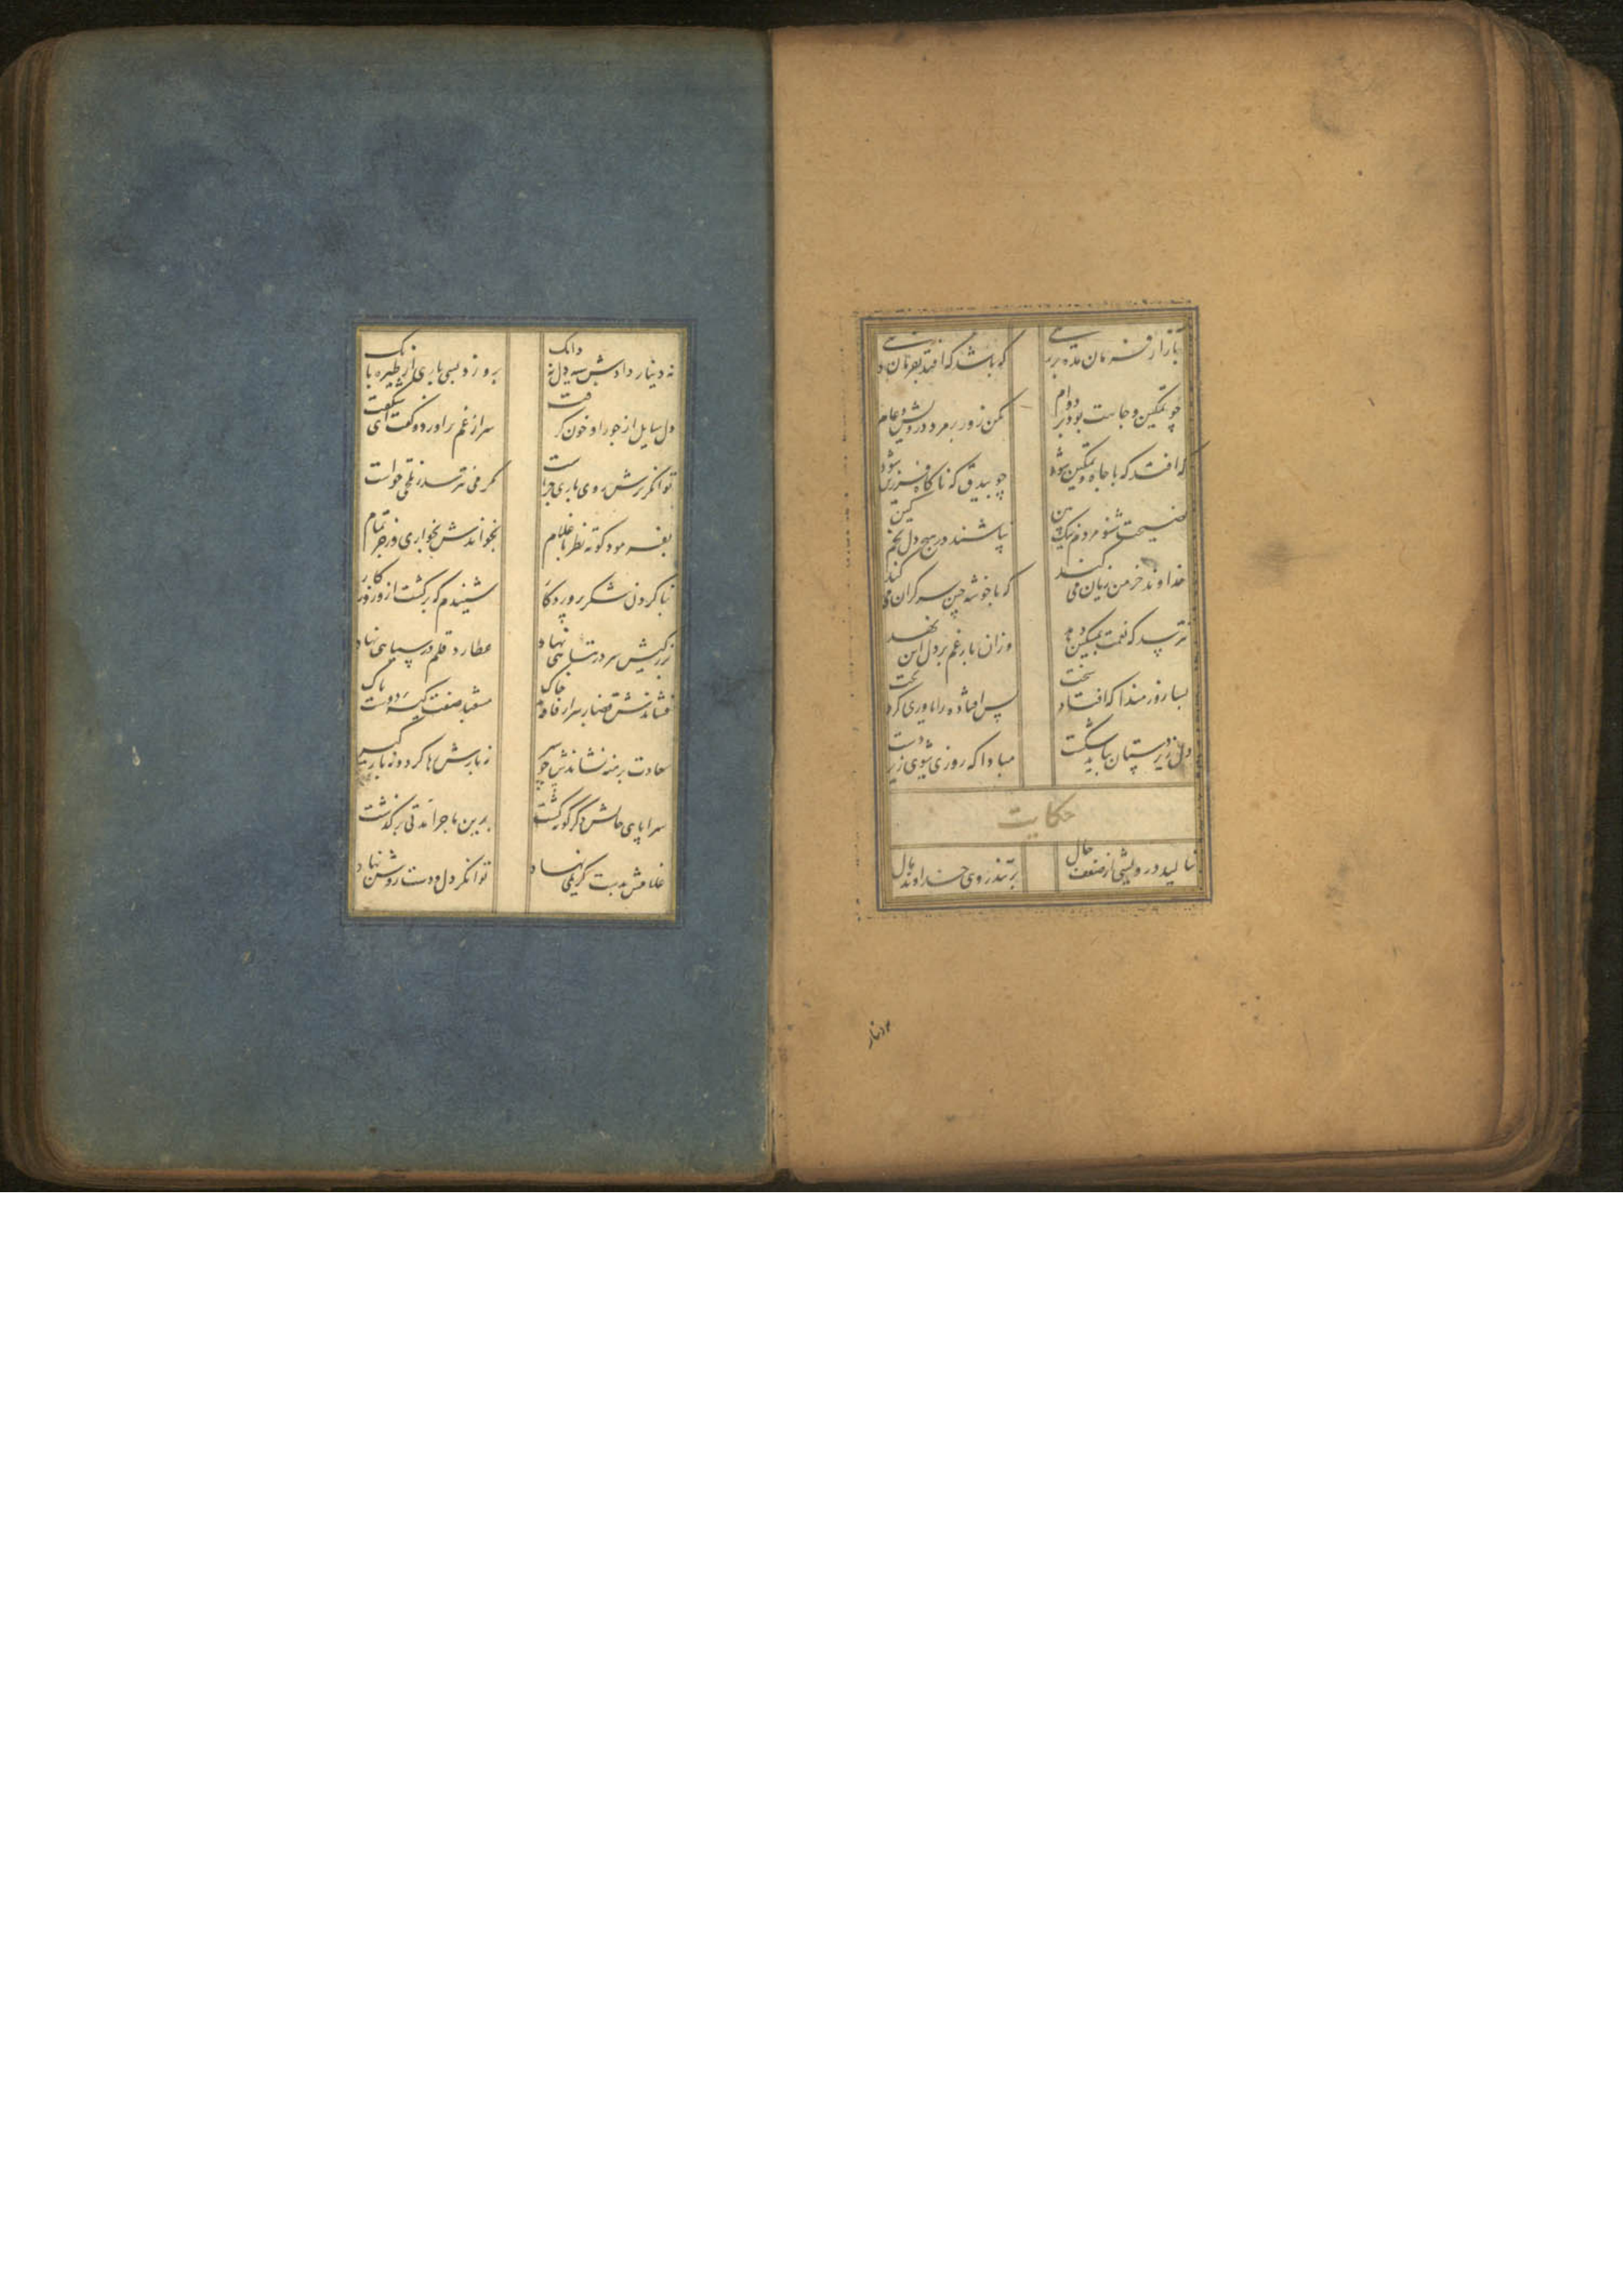 بآزار فرمان مده بر رهی که باشد که افتد بفرماندهی
چو تمکین و جاهت بود بر دوام مکن زور بر مرد درویش و عام
که افتد که با جاه و تمکین شود چو بیدق که ناگاه فرزین شود
نصیحت شنو مردم نیک بین نپاشند در هیچ دل تخم کین
خداوند خرمن زیان می کند که با خوشه چین سر گران می کند
نترسد که نعمت بمسکین دهد وزان بار غم بر دل این نهد
بسا زورمندا که افتاد سخت بس افتاده را یاوری کرد بخت
دل زیردستان نباید شکست مبادا که روزی شوی زیردست
حکایت
بنالید درویشی از ضعف حال بر تندروی خداوند مال
نه دینار
نه دینار دادش سیه دل نه دانک برو زد بسی باری از طیره بانک
دل سایل از جور او خون گرفت سر از غم براورد و گفت ای شگفت
توانگر ترش روی باری چراست مگر می نترسد ز تلخی خواست
بفرمود کوته نظر تا غلام بخواندش بخواری و زجر تمام
بنا کردن شکر پروردگار شنیدم که برگشت ازو روزگار
بزرگیش سر در تباهی نهاد عطارد قلم در سیاهی نهاد
فشاندش قضا بر سر از فاقه خاک مشعبد صفت کیسه و دست پاک
برهنه نشاندش چو سیر نه بارش رها کرد و نه بارگیر
سراپای حالش دگرگونه گشت برین ماجرا مدتی برگذشت
غلامش بدست کریمی نهاد توانگر دل و دست و روشن نهاد